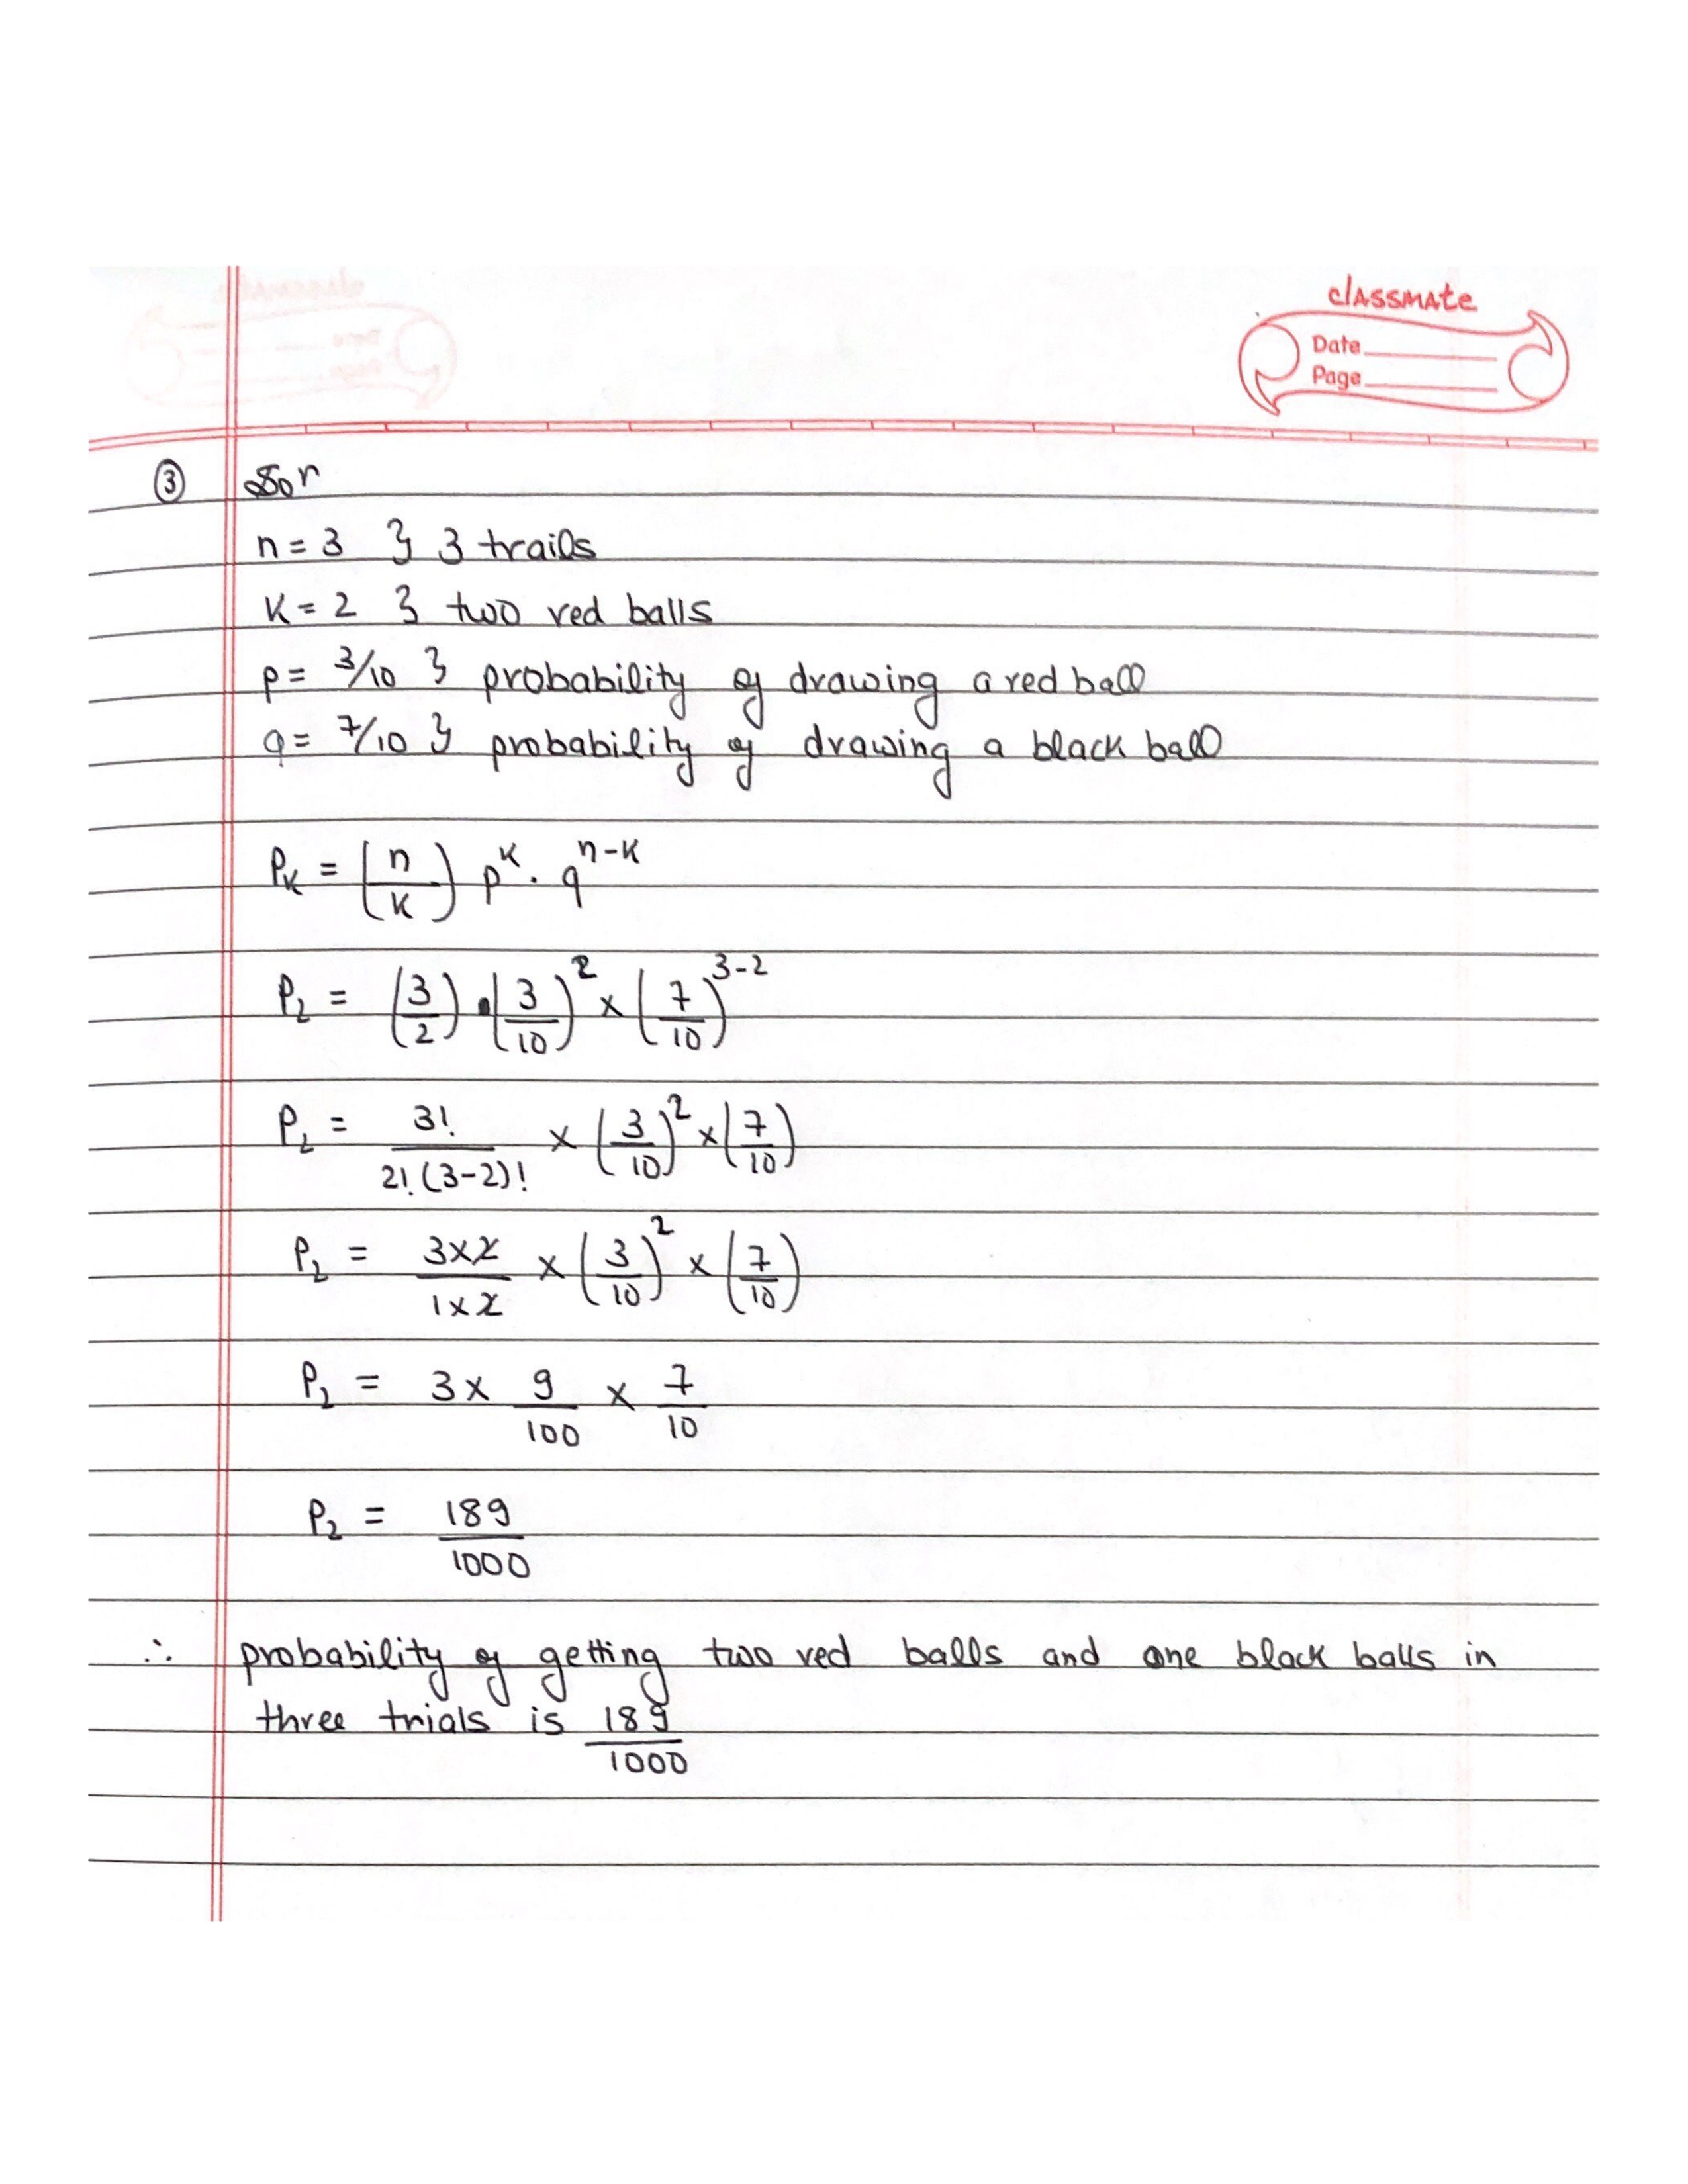 classmate
Date
Page
③ Soln
n = 3 } 3 trails
K = 2 } two red balls
p = 3/10 } probability of drawing a red ball
q = 7/10 } probability of drawing a black ball
P_K = (n/K) p^K · q^(n-K)
P_2 = (3/2) · (3/10)^2 × (7/10)^(3-2)
P_2 = 3!/(2!(3-2)!) × (3/10)^2 × (7/10)
P_2 = (3×2)/(1×2) × (3/10)^2 × (7/10)
P_2 = 3 × 9/100 × 7/10
P_2 = 189/1000
∴ probability of getting two red balls and one black balls in
three trials is 189/1000